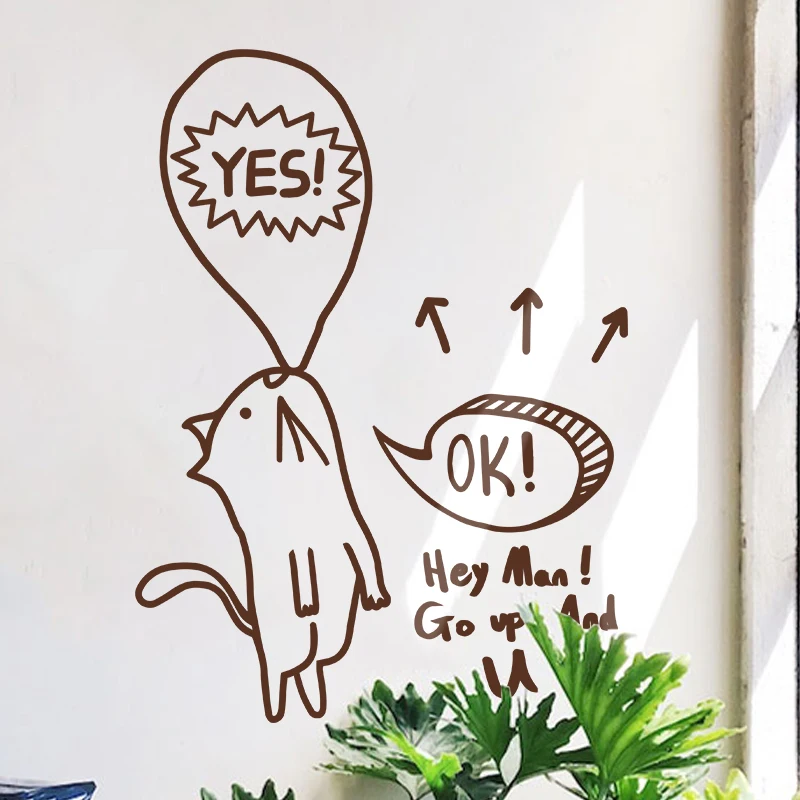 YES!
OK!
Hey Man!
Go up And